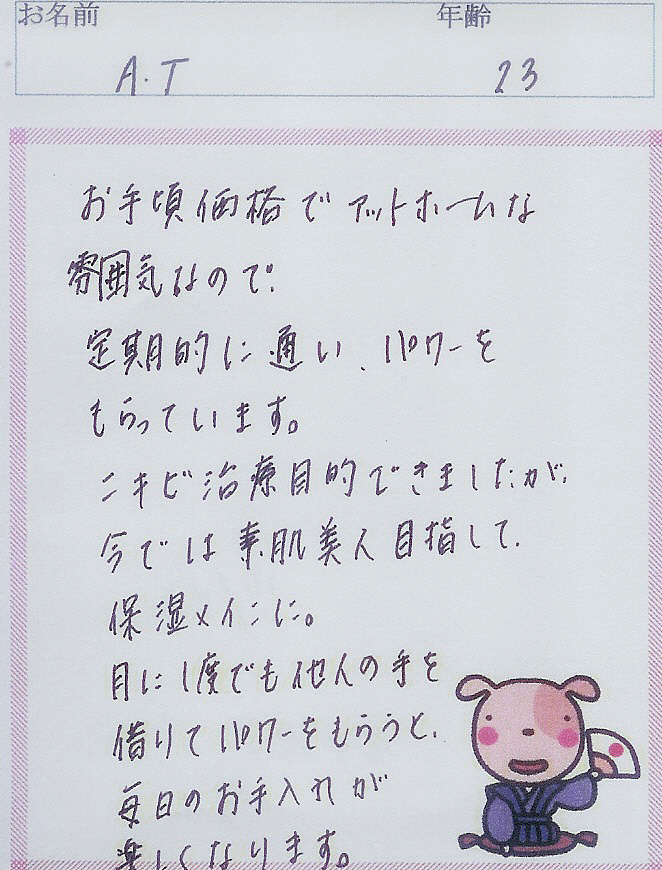 お名前 年齢
A.T 23
お手頃価格でアットホームな
雰囲気なので、
定期的に通い、パワーを
もらっています。
ニキビ治療目的できましたが、
今では素肌美人目指して、
保湿メインに。
月に1度でも他人の手を
借りてパワーをもらうと、
毎日のお手入れが
楽しくなります。